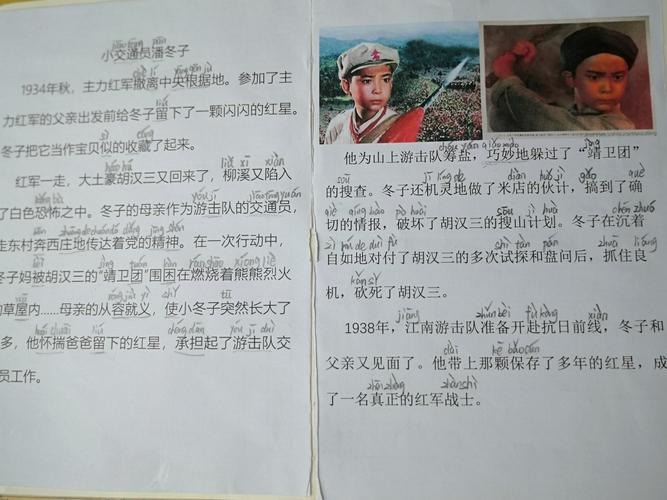 小交通员潘冬子
1934年秋，主力红军撤离中央根据地。参加了主
力红军的父亲出发前给冬子留下了一颗闪闪的红星。
冬子把它当作宝贝似的收藏了起来。
红军一走，大土豪胡汉三又回来了，柳溪又陷入
了白色恐怖之中。冬子的母亲作为游击队的交通员，
走东村奔西庄地传达着党的精神。在一次行动中，
冬子妈被胡汉三的“靖卫团”围困在燃烧着熊熊烈火
的草屋内……母亲的从容就义，使小冬子突然长大了
多，他怀揣爸爸留下的红星，承担起了游击队交
员工作。
他为山上游击队筹盐，巧妙地躲过了“靖卫团”
的搜查。冬子还机灵地做了米店的伙计，搞到了确
切的情报，破坏了胡汉三的搜山计划。冬子在沉着
自如地对付了胡汉三的多次试探和盘问后，抓住良
机，砍死了胡汉三。
1938年，江南游击队准备开赴抗日前线，冬子和
父亲又见面了。他带上那颗保存了多年的红星，成
了一名真正的红军战士。